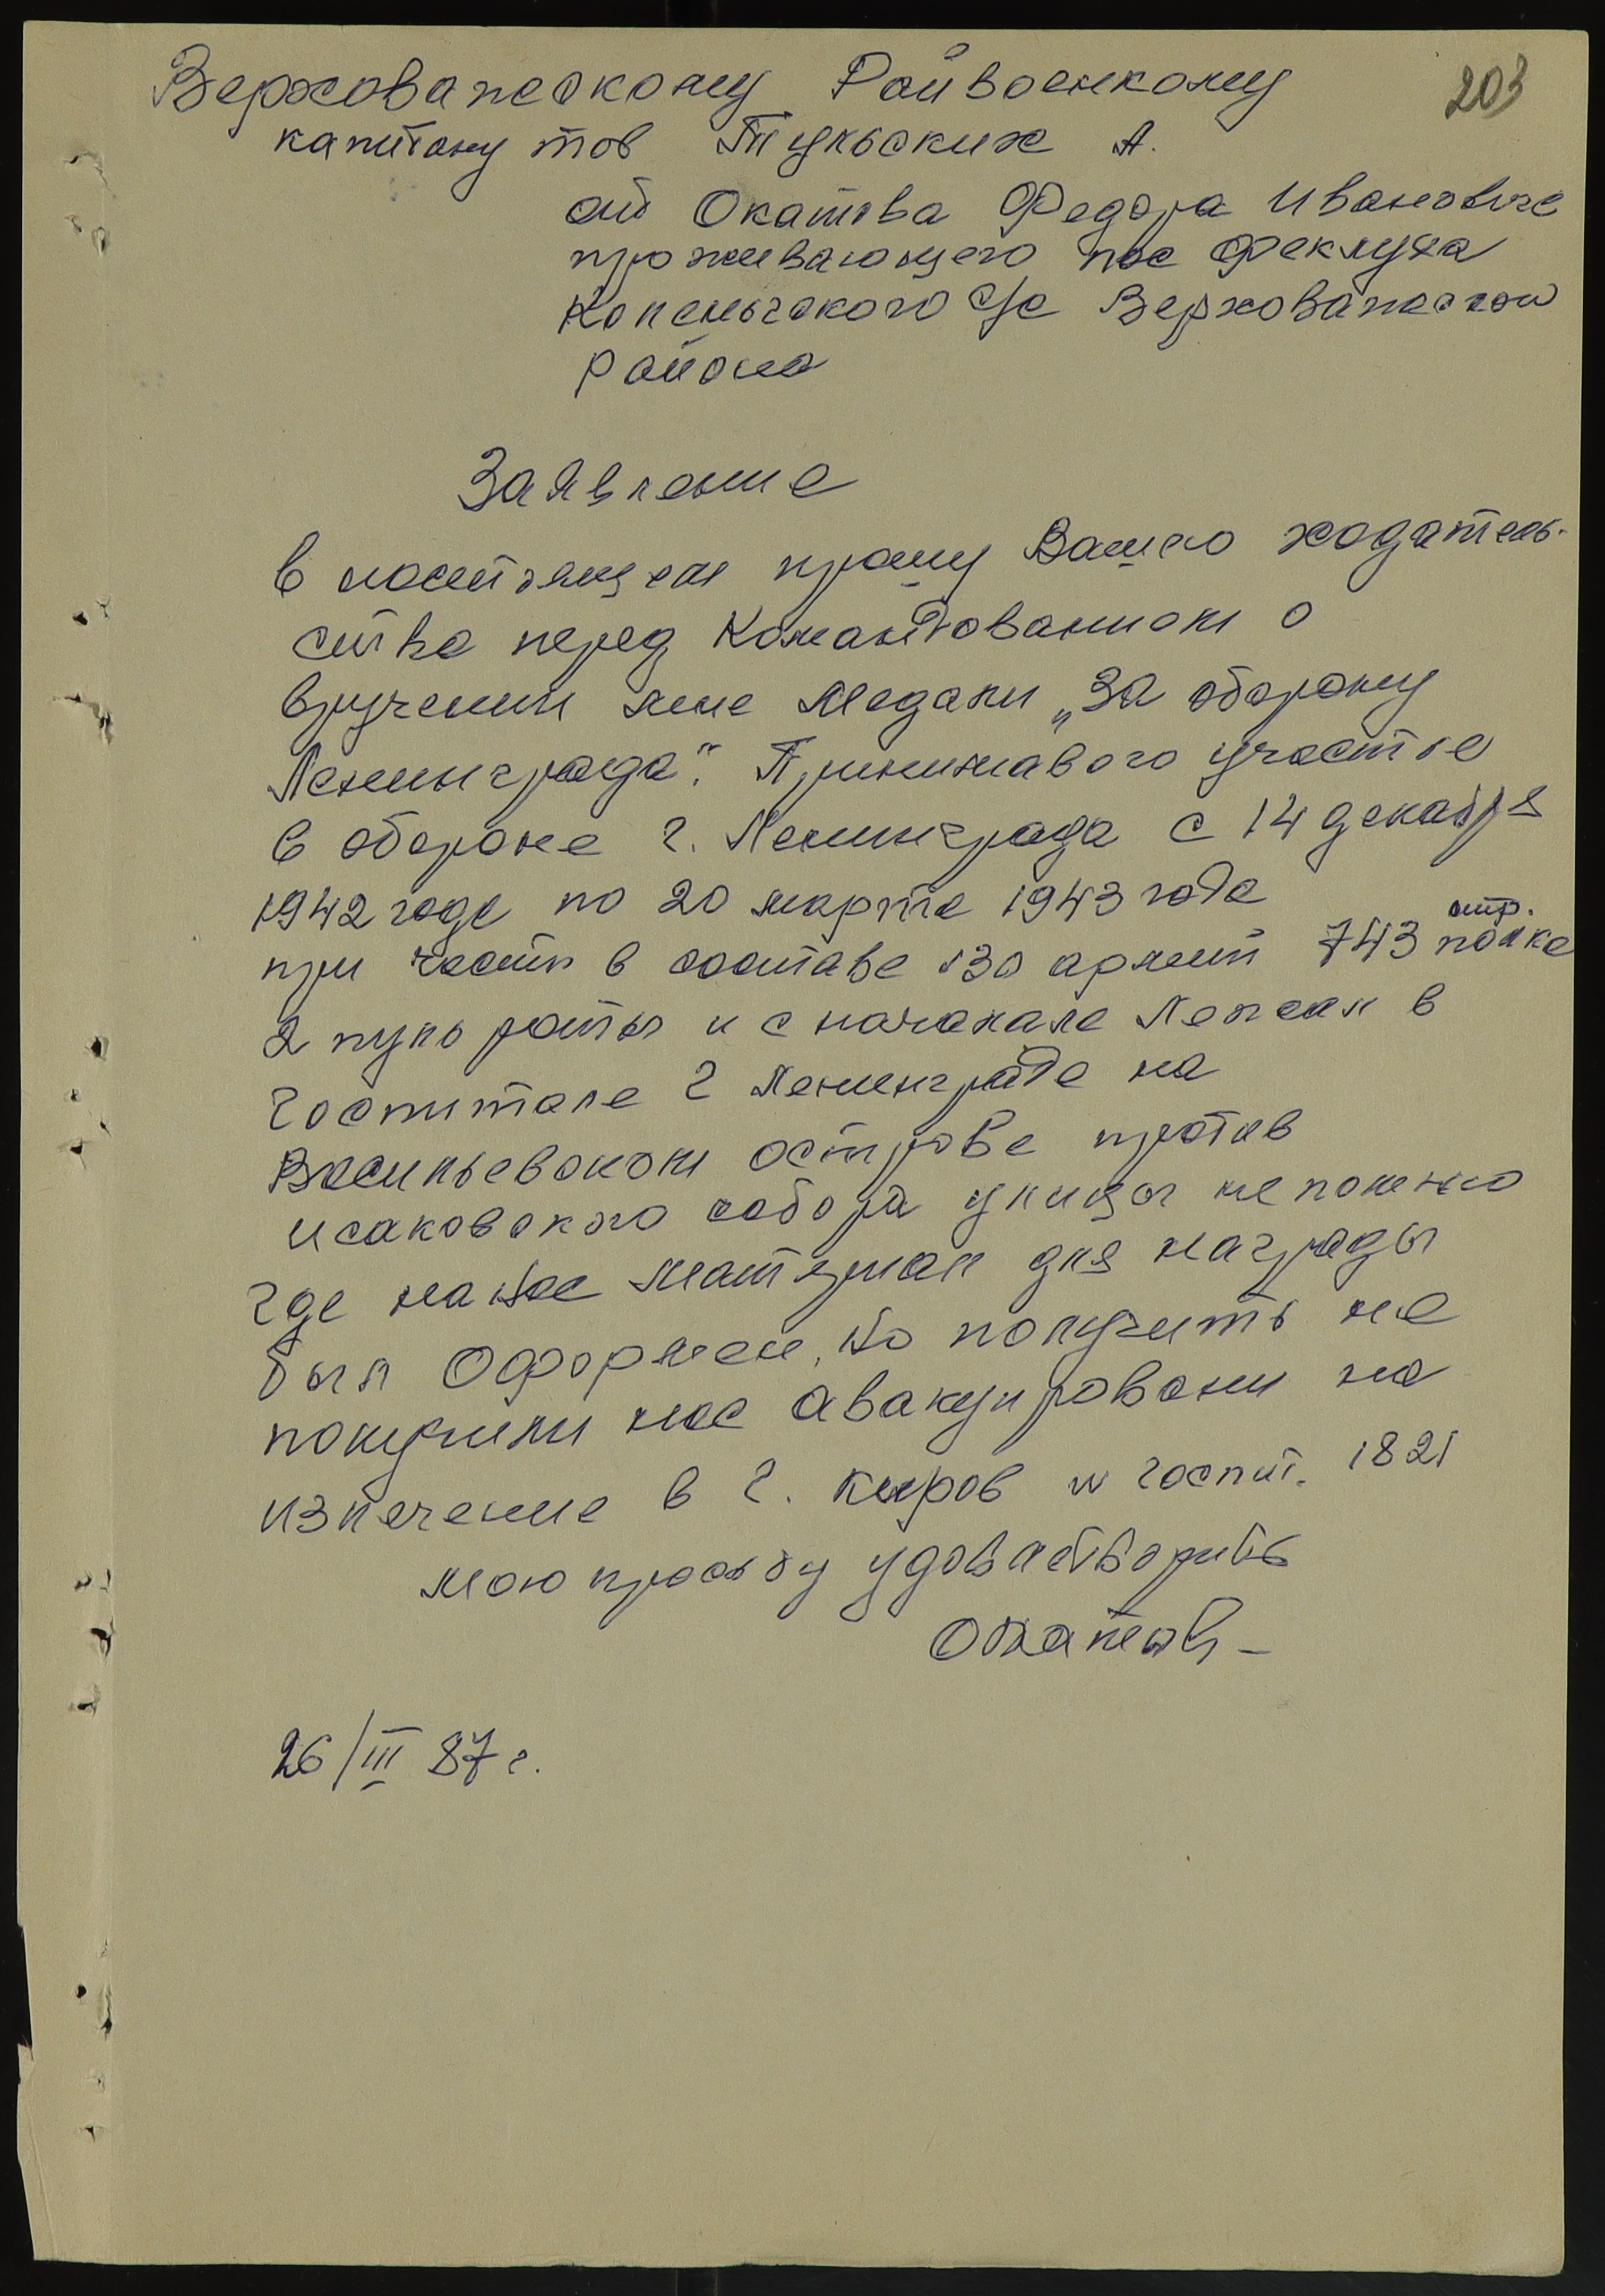 203
Верховажскому Райвоенкому
капитану тов Тульских А.
от Окатова Федора Ивановича
проживающего пос Феклуха
Коленьгского с/с Верховажского
района
Заявление
В настоящем прошу Вашего ходатель-
ства перед Командованием о
вручении мне Медали „За оборону
Ленинграда". Принимавого участье
в обороне г. Ленинграда с 14 декабря
1942 годе по 20 марта 1943 года
при части в составе 130 армии 743 стр. полка
2 пуль роты и с начанале Лежал в
госпитале г Ленинграде на
Васильевском острове против
исаковского собора улицы не помню
где на нас Матерьял для награды
был Оформлен, но получить не
получили нас авакуировали на
излечение в г. Киров № госпит. 1821
мою просьбу удовлетворить
Окатов
26/III 87 г.